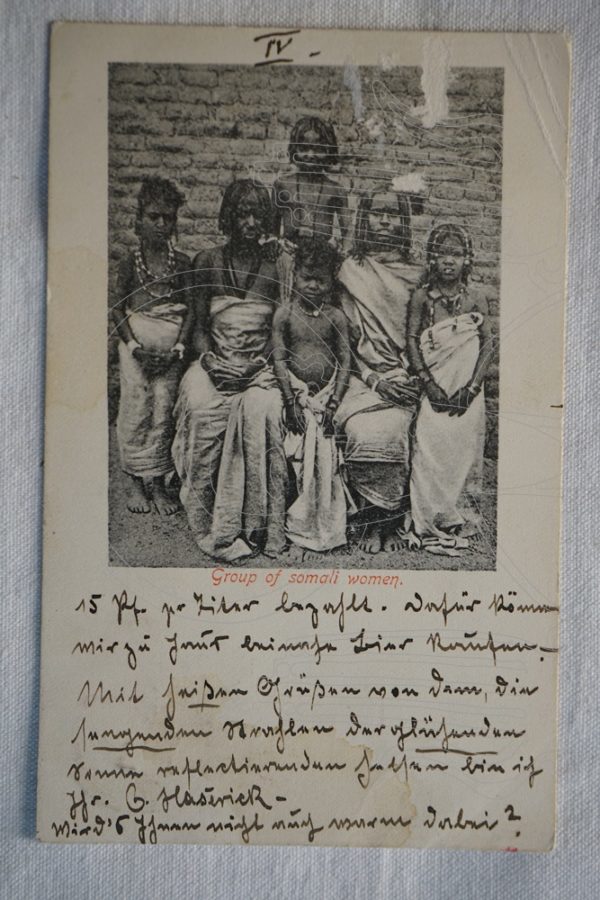 IV.
Group of somali women.
15 Pf. pr Liter bezahlt. Dafür können
wir zu Haus beinahe Bier kaufen. -
Mit heißen Grüßen von dem, die
sengenden Strahlen der glühenden
Sonne reflectierenden Felsen bin ich
Ihr. C. Haserick -
Wird's Ihnen nicht auch warm dabei?